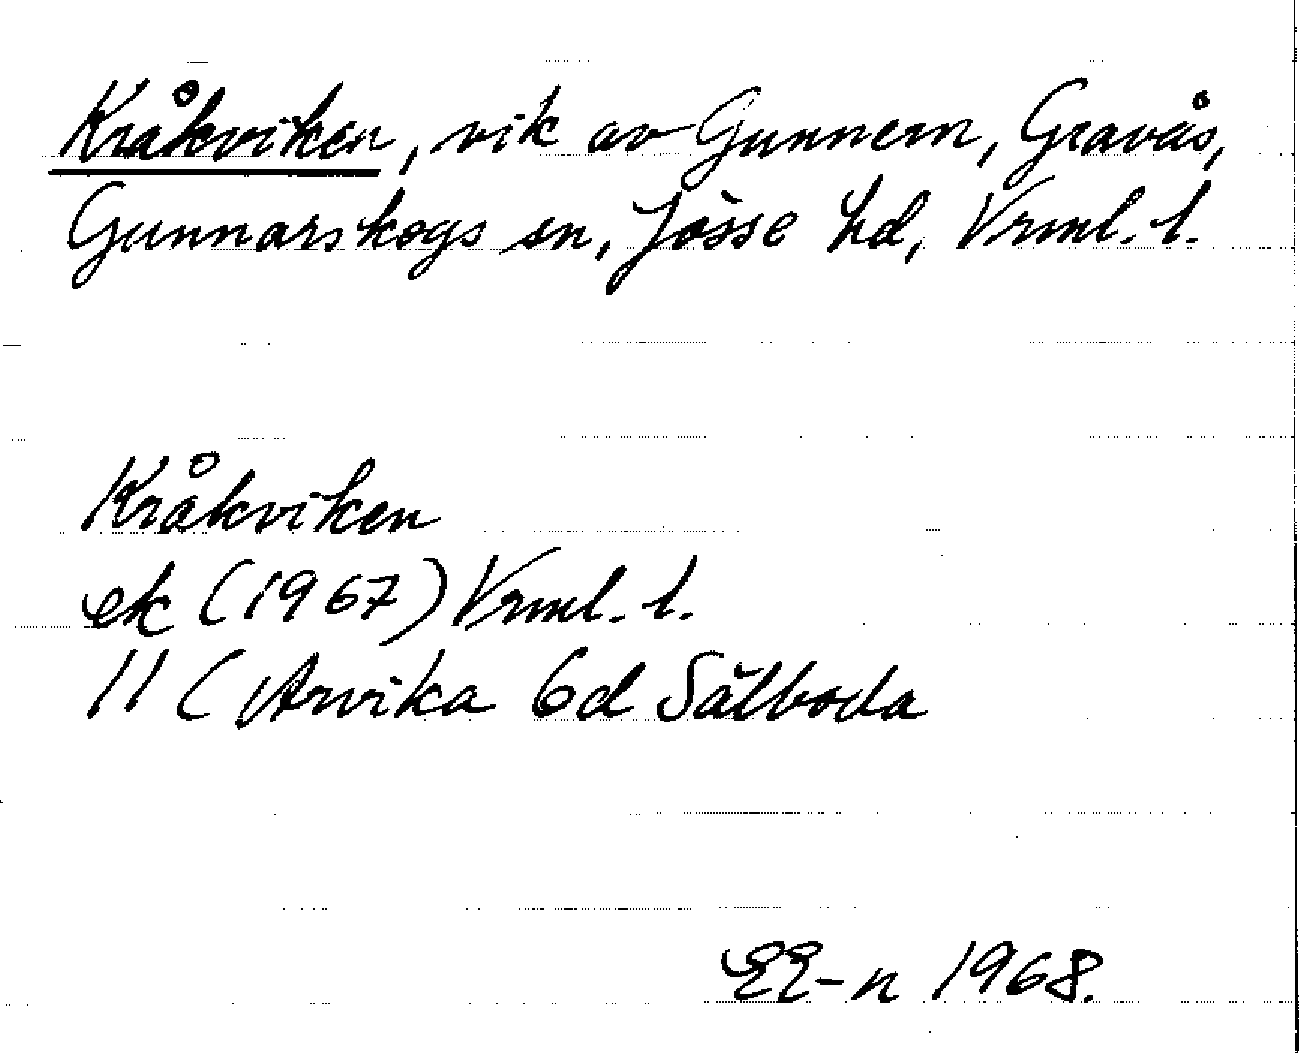 Kråkviken, vik av Gunnern, Gravås,
Gunnarskogs sn, Jösse hd, Vrml. l.
Kråkviken
ek (1967) Vrml. l.
11 ( Arvika 6d Sälboda
EE-n 1968.